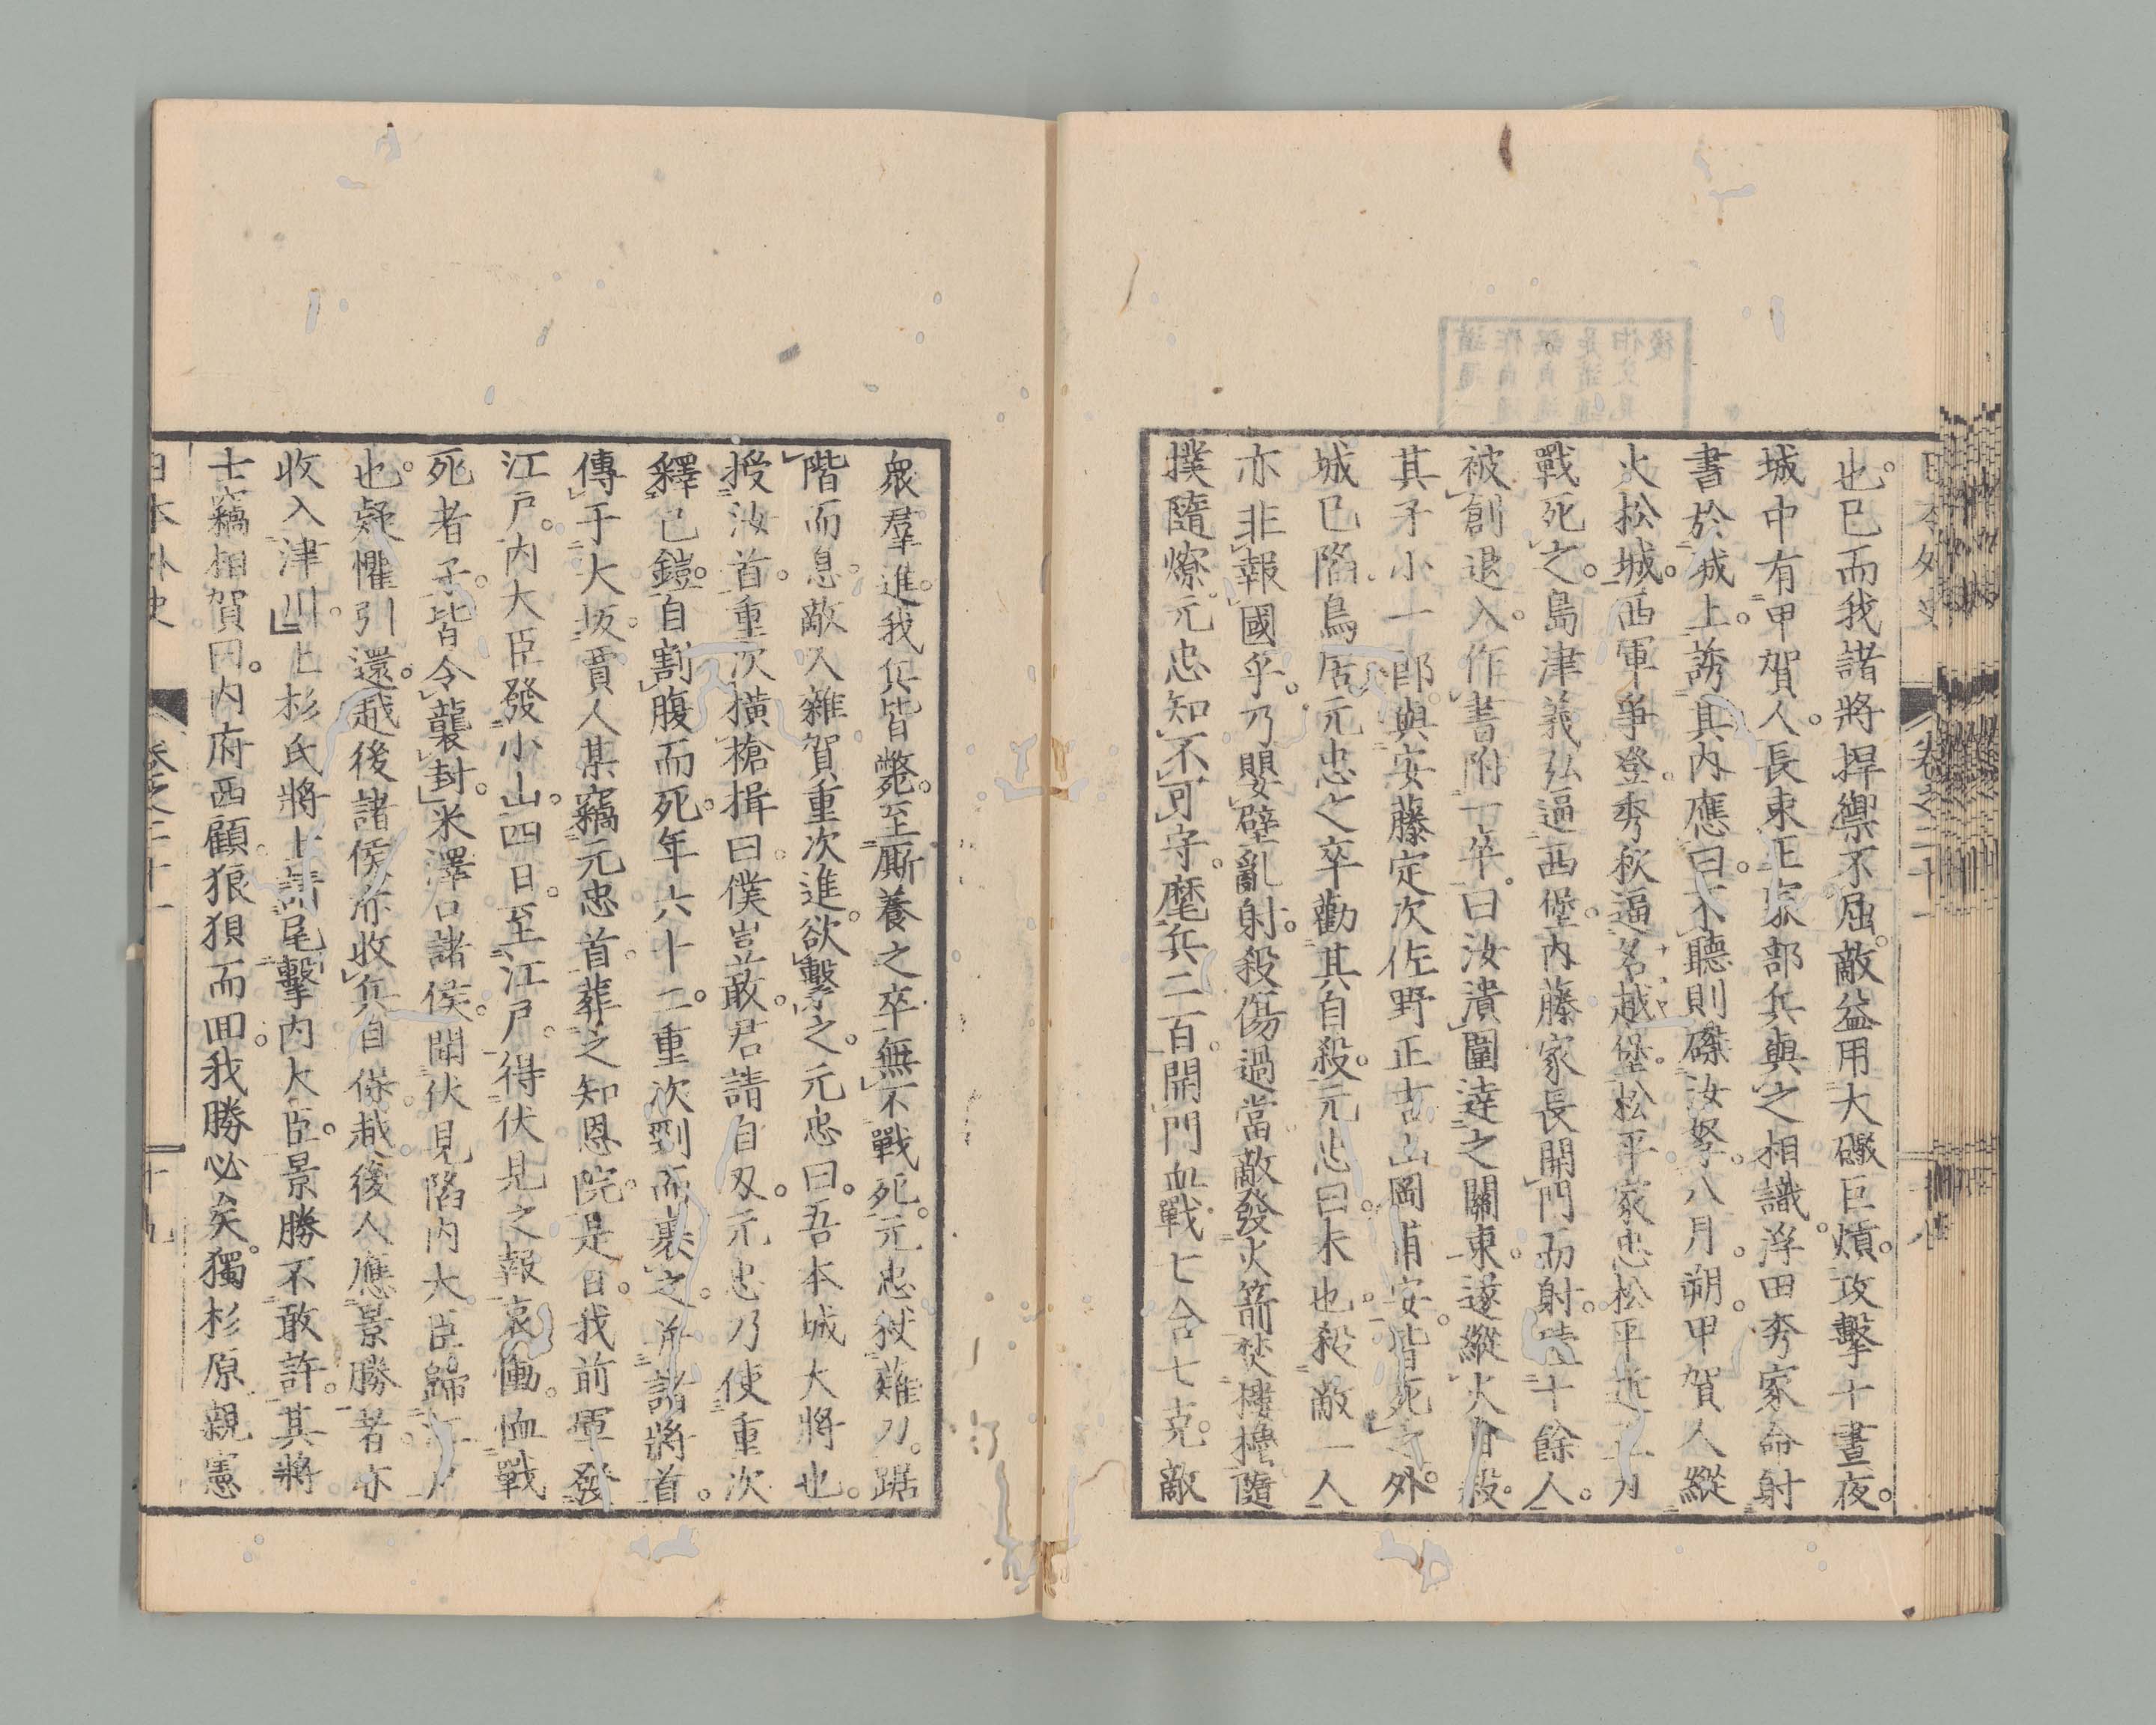 也。已而我諸將捍禦不屈。敵益用大礮巨熕。攻擊十晝夜。
城中有甲賀人。長束正家部兵與之相識。浮田秀家命射
書於城上。誘其內應曰。不聽則磔汝孥。八月。朔。甲賀人縱
火松城。西軍爭登。秀秋逼名越堡。松平家忠松平近正力
戰死之。島津義弘逼西堡。內藤家長開門而射。殪十餘人。
被創退入。作書附一卒。曰汝潰圍達之關東。遂縱火自殺。
其子小一郎與安藤定次佐野正吉山岡甫安。皆死之。外
城已陷。鳥居元忠之卒勸其自殺。元忠曰。未也。殺敵一人
亦非報國乎。乃嬰壁亂射。殺傷過當。敵發火箭焚樓櫓。隨
撲隨燎。元忠知不可守。麾兵二百。開門血戰。七合七克。敵
日本外史 卷之二十一 十八
衆羣進。我兵皆斃。至厮養之卒。無不戰死。元忠杖薙刀。踞
階而息。敵人雜賀重次進。欲擊之。元忠曰。吾本城大將也。
授汝首。重次橫槍揖曰。僕豈敢。君請自刄。元忠乃使重次
釋己鎧。自割腹而死。年六十二。重次剄而裹之。并諸將首。
傳于大坂。賈人某竊元忠首。葬之知恩院。是日。我前軍發
江戶。內大臣發小山。四日。至江戶。得伏見之報。哀慟。恤戰
死者子。皆令襲封。米澤口諸侯。聞伏見陷內大臣歸江戶
也。疑懼引還。越後諸侯亦收兵自保。越後人應景勝者亦
收入津川。上杉氏將士請尾擊內大臣。景勝不敢許。其將
士竊相賀曰。內府西顧。狼狽而回。我勝必矣。獨杉原親憲
日本外史 卷之二十一 十九